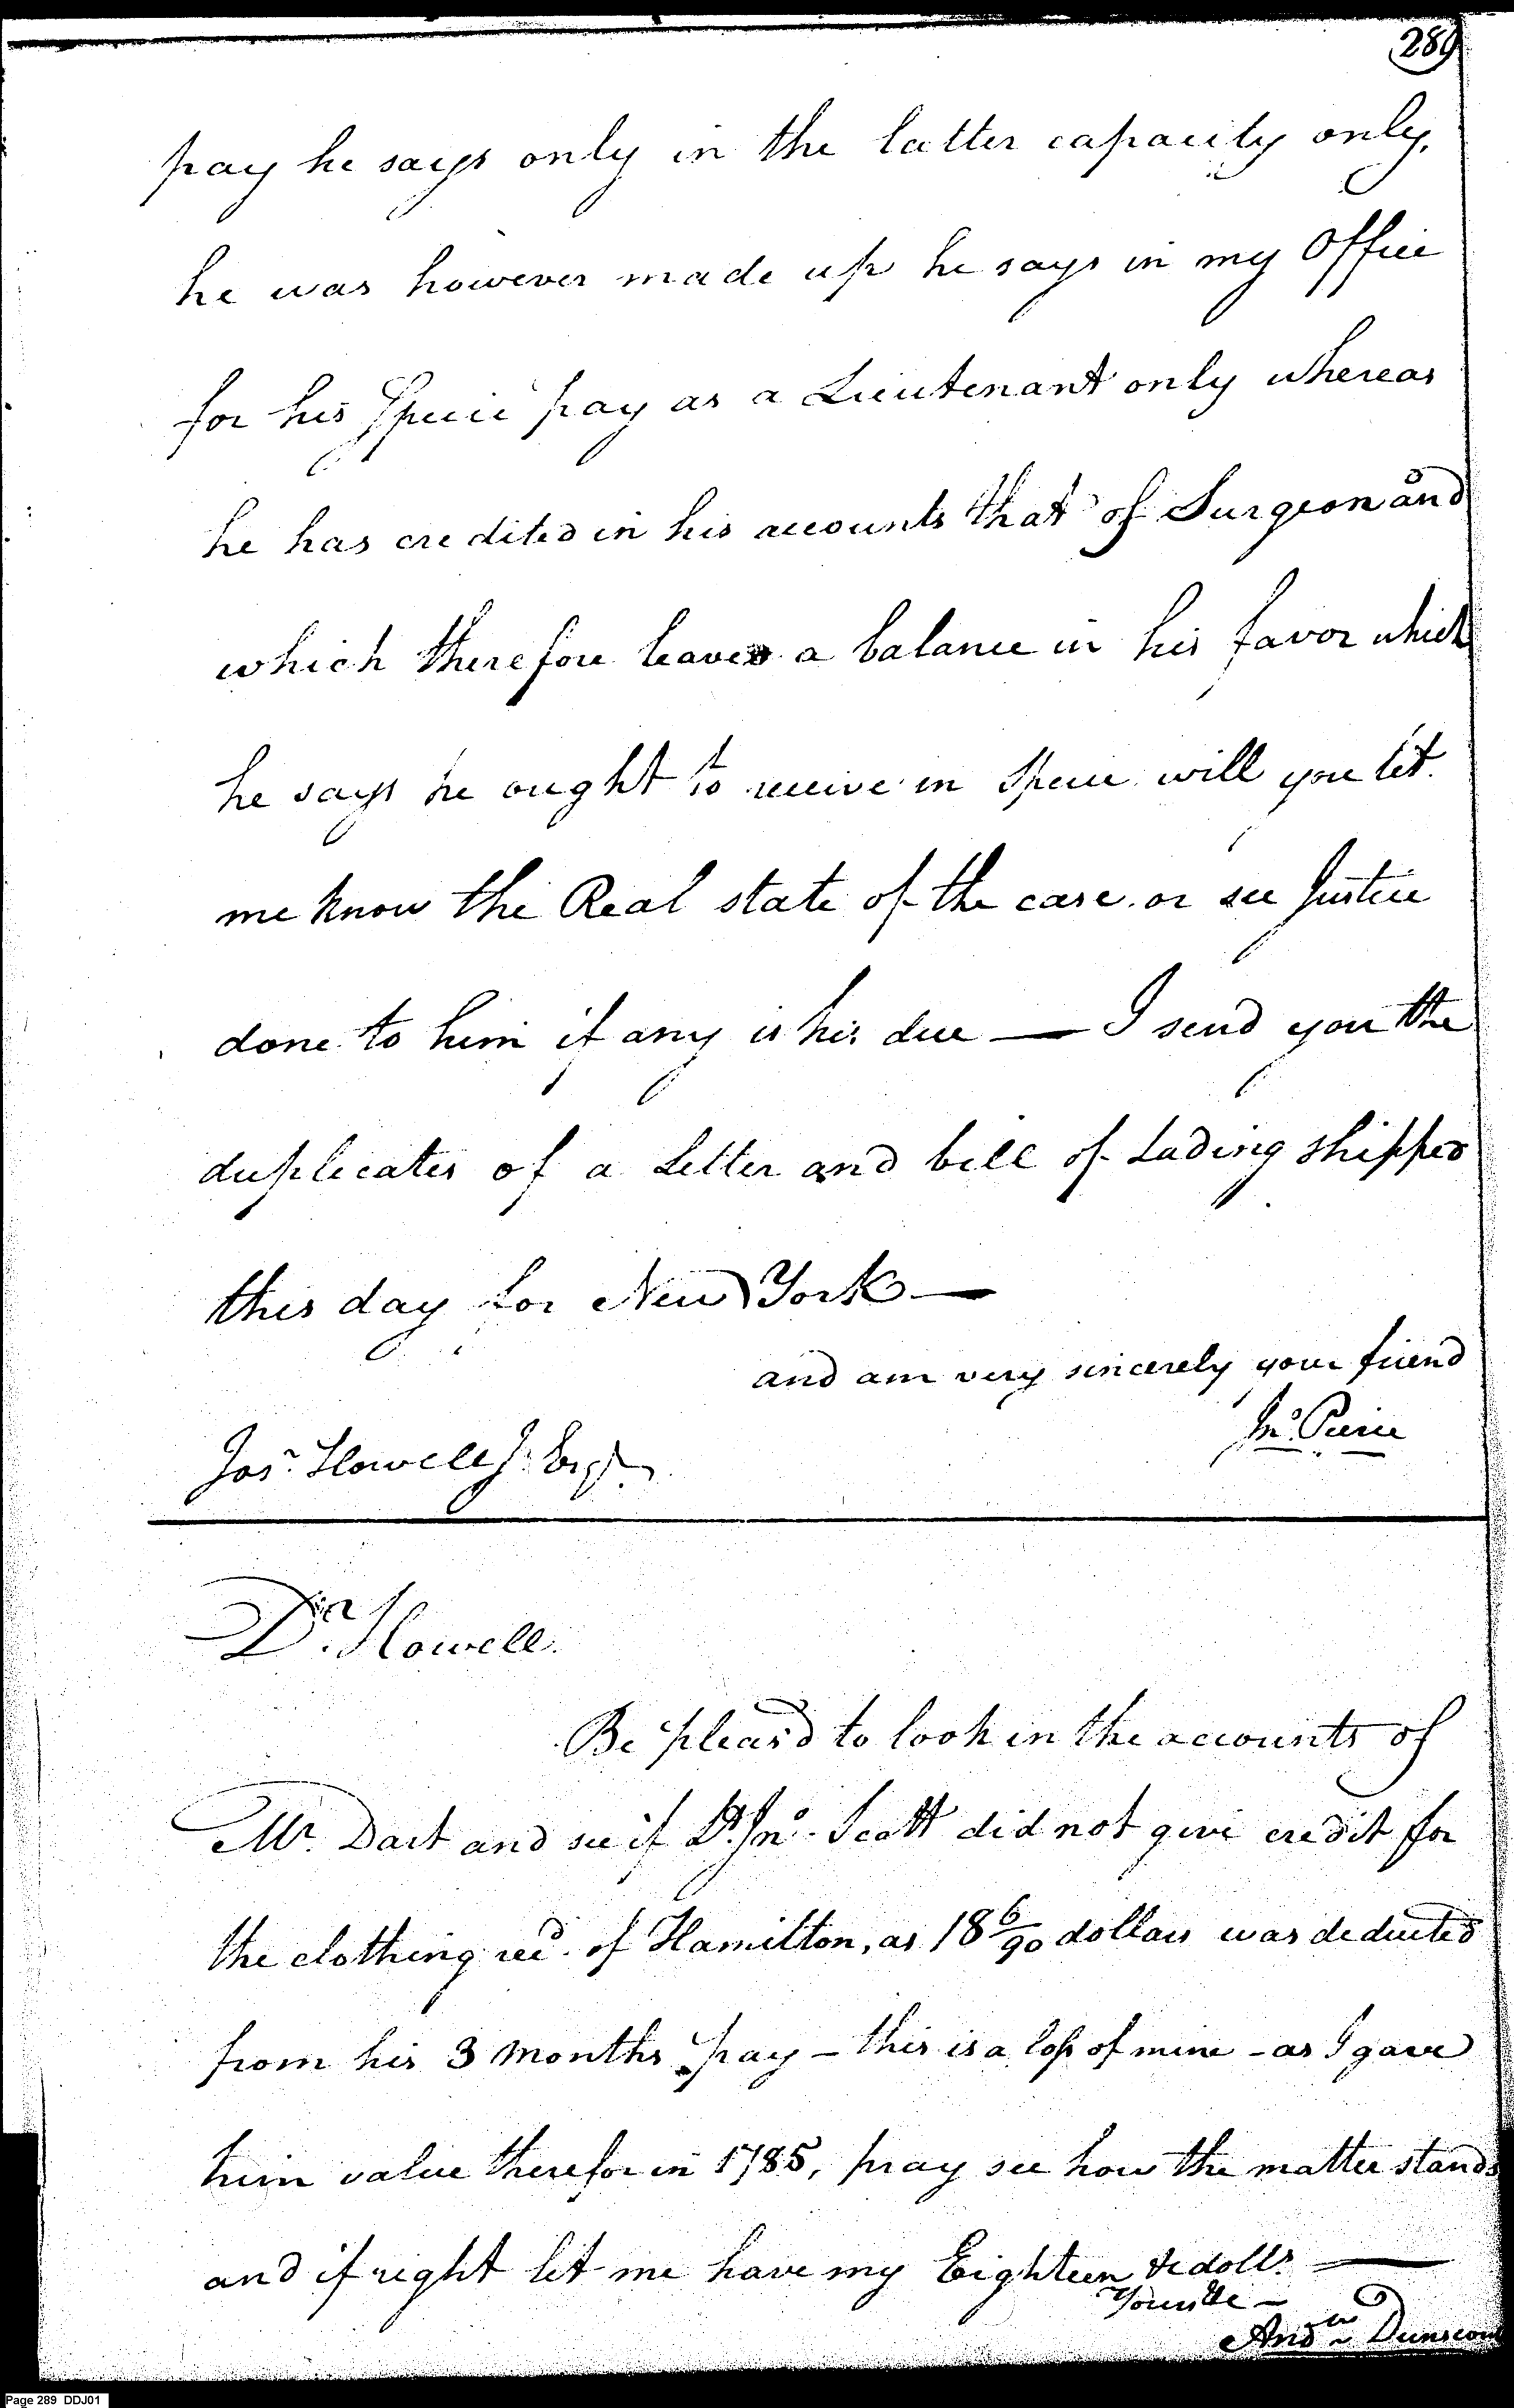 289
pay he says only in the latter capacity only,
he was however made up he says in my Office
for his Specie pay as a Lieutenant only whereas
he has credited in his accounts that of Surgeon and
which therefore leaves a balance in his favor which
he says he ought to receive in Specie will you let
me know the Real state of the case or see Justice
done to him if any is his due — I send you the
duplicates of a Letter and bill of Lading shipped
this day for New York —
and am very sincerely your friend
Jno. Pierce
Jos. Howell Jr. Esqr.
Dr. Howell.
Be pleas'd to look in the accounts of
Mr. Dart and see if Lt. Jno. Scott did not give credit for
the clothing recd. of Hamilton, as 18 6/90 dollars was deducted
from his 3 Months pay – this is a loss of mine – as I gave
him value therefor in 1785, pray see how the matter stands
and if right let me have my Eighteen &c dolls. —
Yours &c –
Andw. Dunscomb
Page 289 DDJ01